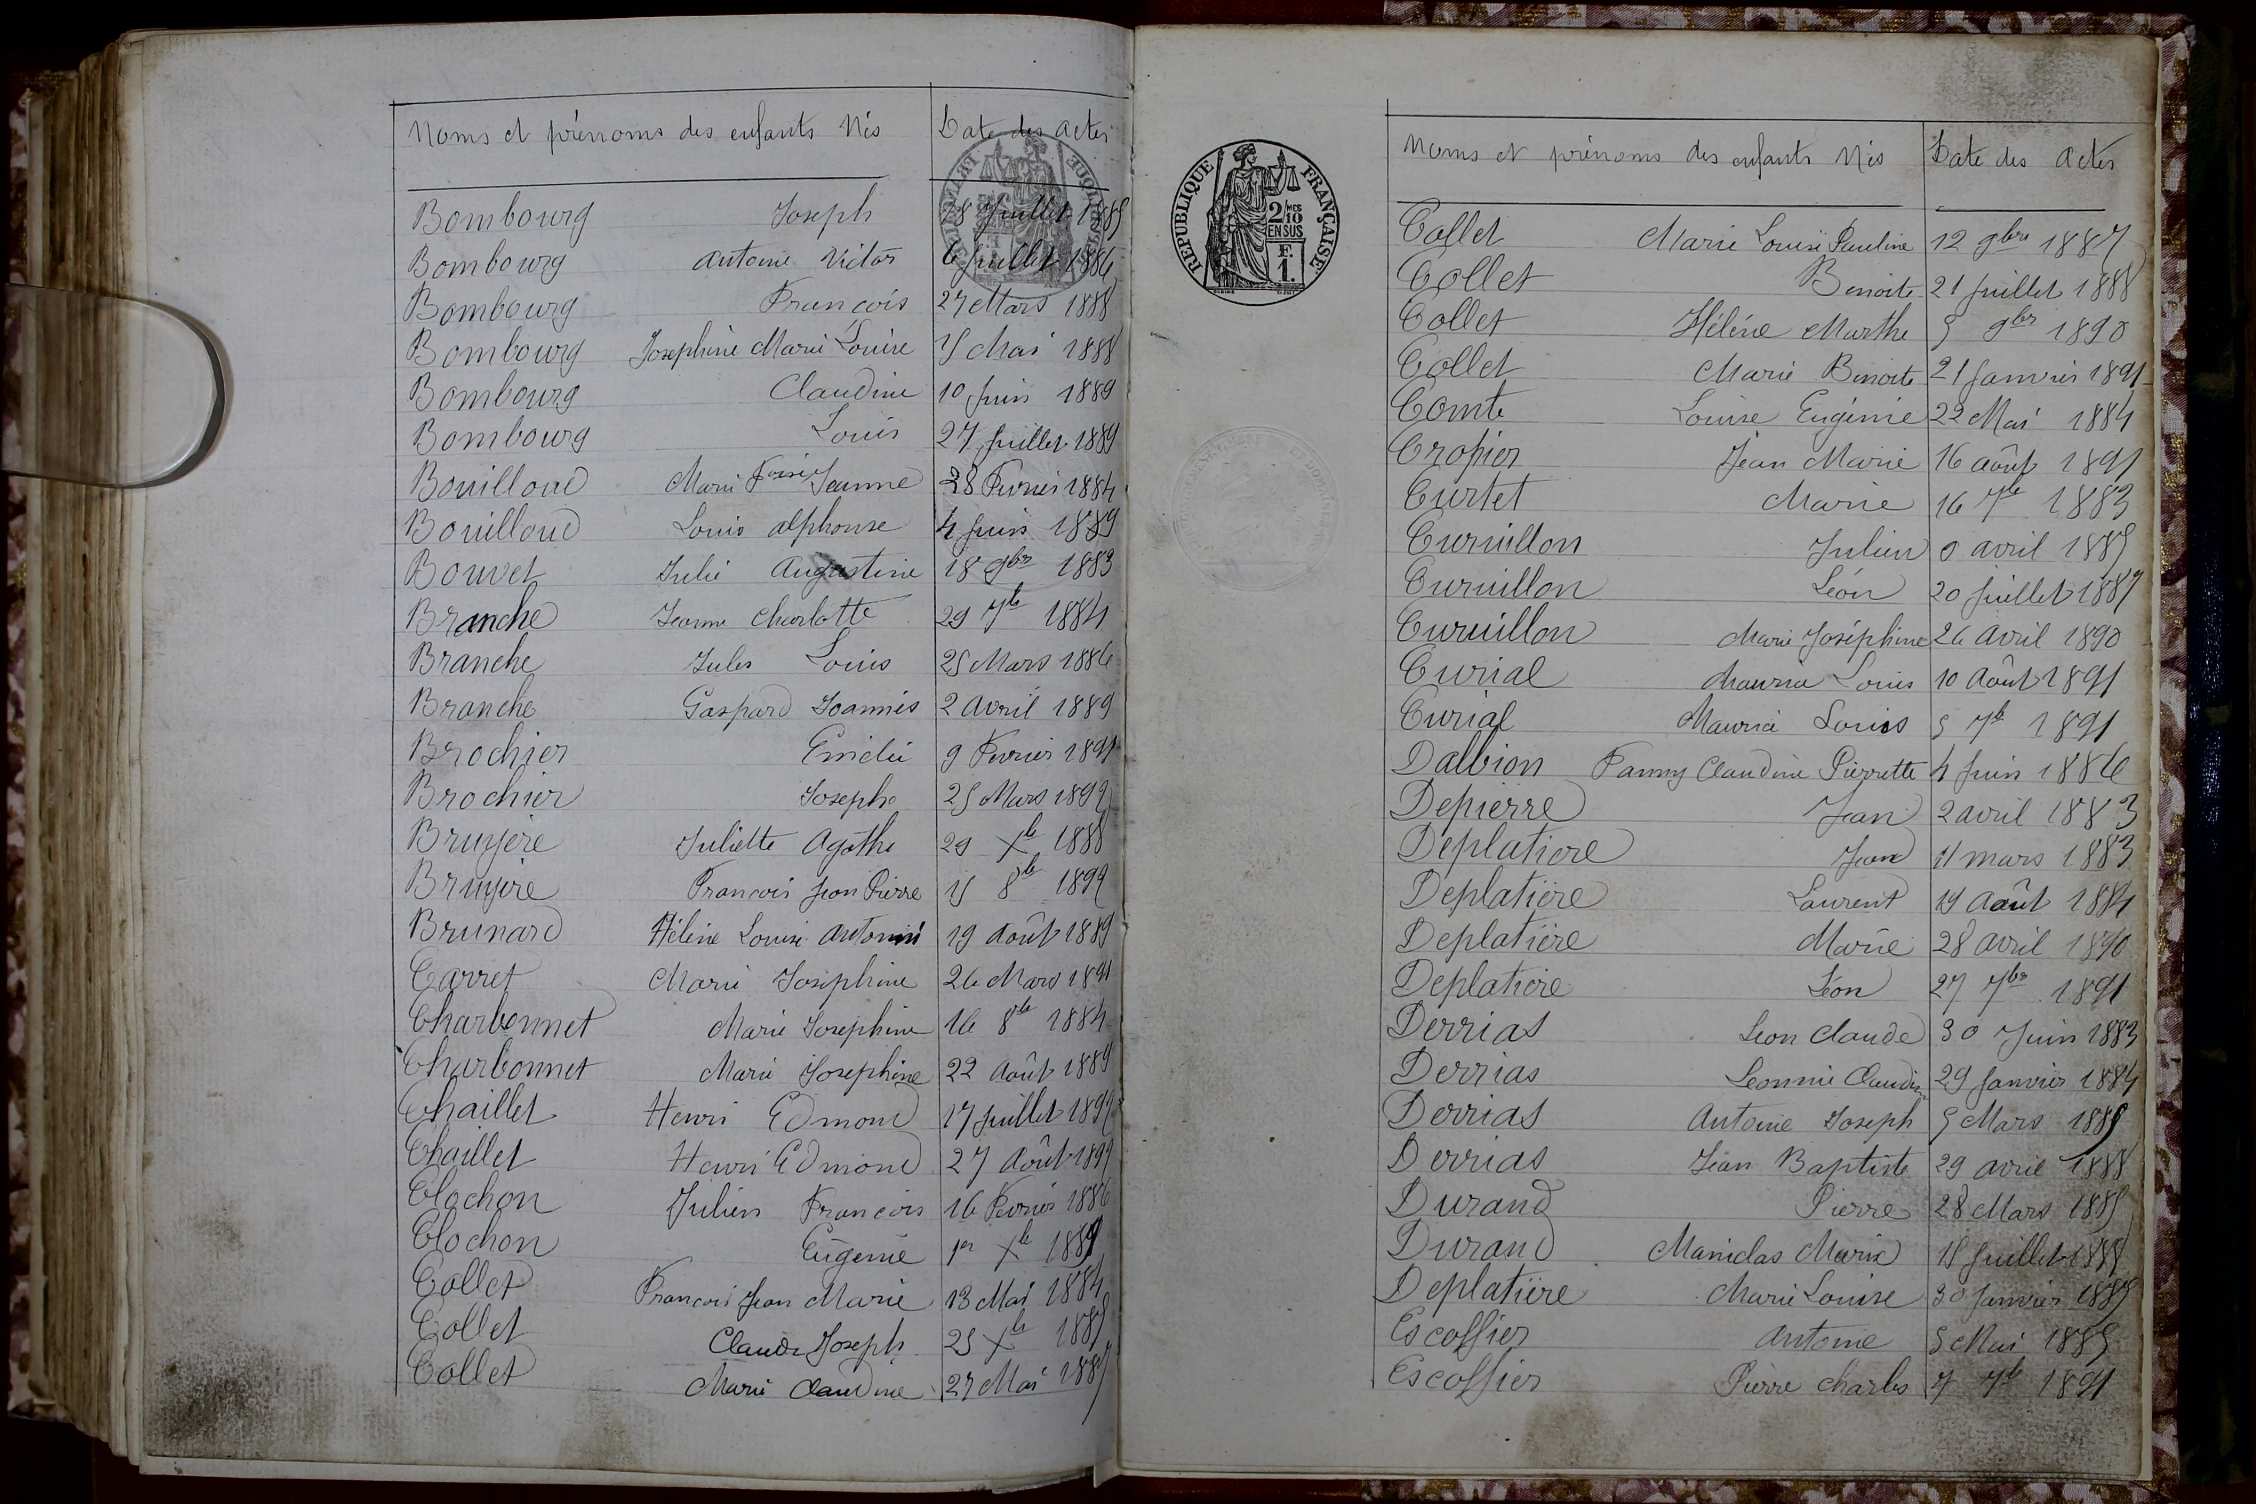 Noms et prénoms des enfants Nés Date des actes
Bombourg Joseph 18 Juillet 1885
Bombourg Antoine Victor 6 Juillet 1886
Bombourg François 27 Mars 1888
Bombourg Josephine Marie Louise 15 Mai 1888
Bombourg Claudine 10 Juin 1889
Bombourg Louis 27 Juillet 1889
Bouilloud Marie Jeanne 28 Fevrier 1884
Bouilloud Louis alphonse 4 Juin 1889
Bouvet Julie Augustine 18 9bre 1883
Branche Jeanne Charlotte 29 7bre 1884
Branche Jules Louis 25 Mars 1886
Branche Gaspard Joannés 2 Avril 1889
Brochier Emélie 9 Fevrier 1891
Brochier Joseph 25 Mars 1892
Bruyère Juliette Agathe 29 Xbre 1888
Bruyère François Jean Pierre 15 8bre 1892
Brunard Hélène Louise Antonin 19 Août 1889
Carret Marie Joséphine 26 Mars 1891
Charbonnet Marie Josephine 16 8bre 1884
Charbonnet Marie Josephine 22 Août 1889
Chaillet Henri Edmond 17 Juillet 1892
Chaillet Henri Edmond 27 Août 1892
Clochon Julien François 16 Fevrier 1886
Clochon Eugenie 1er Xbre 1889
Collet François Jean Marie 13 Mai 1884
Collet Claude Joseph 25 Xbre 1885
Collet Marie Claudine 27 Mai 1887
REPUBLIQUE FRANÇAISE
2/10 MES
EN SUS
F.
1.
Noms et prénoms des enfants Nés Date des Actes
Collet Marie Louise Pauline 12 9bre 1887
Collet Benoite 21 Juillet 1888
Collet Hélène Marthe 5 9bre 1890
Collet Marie Benoite 21 Janvier 1891
Comte Louise Eugénie 22 Mai 1884
Cropier Jean Marie 16 août 1891
Curtet Marie 16 7bre 1883
Curuillon Julien avril 1885
Curuillon Léon 20 Juillet 1887
Curuillon Marie Joséphine 26 Avril 1890
Curial Maurice Louis 10 Août 1891
Curial Maurice Louis 5 7bre 1891
Dalbion Fanny Claudine Pierrette 4 Juin 1886
Depierre Jean 2 avril 1883
Déplatière Jean 11 mars 1883
Deplatière Laurent 19 Août 1884
Deplatière Marie 28 avril 1890
Deplatière Léon 27 7bre 1891
Derrias Leon Claude 30 Juin 1883
Derrias Leonnie Claudine 29 Janvier 1884
Derrias Antoine Joseph 5 Mars 1885
Derrias Jean Baptiste 29 avril 1888
Durand Pierre 28 Mars 1885
Durand Marie 18 Juillet 1888
Deplatière Marie Louise 30 Janvier 1887
Escoffier Antoine 5 Mai 1885
Escoffier Pierre Charles 7 7bre 1891